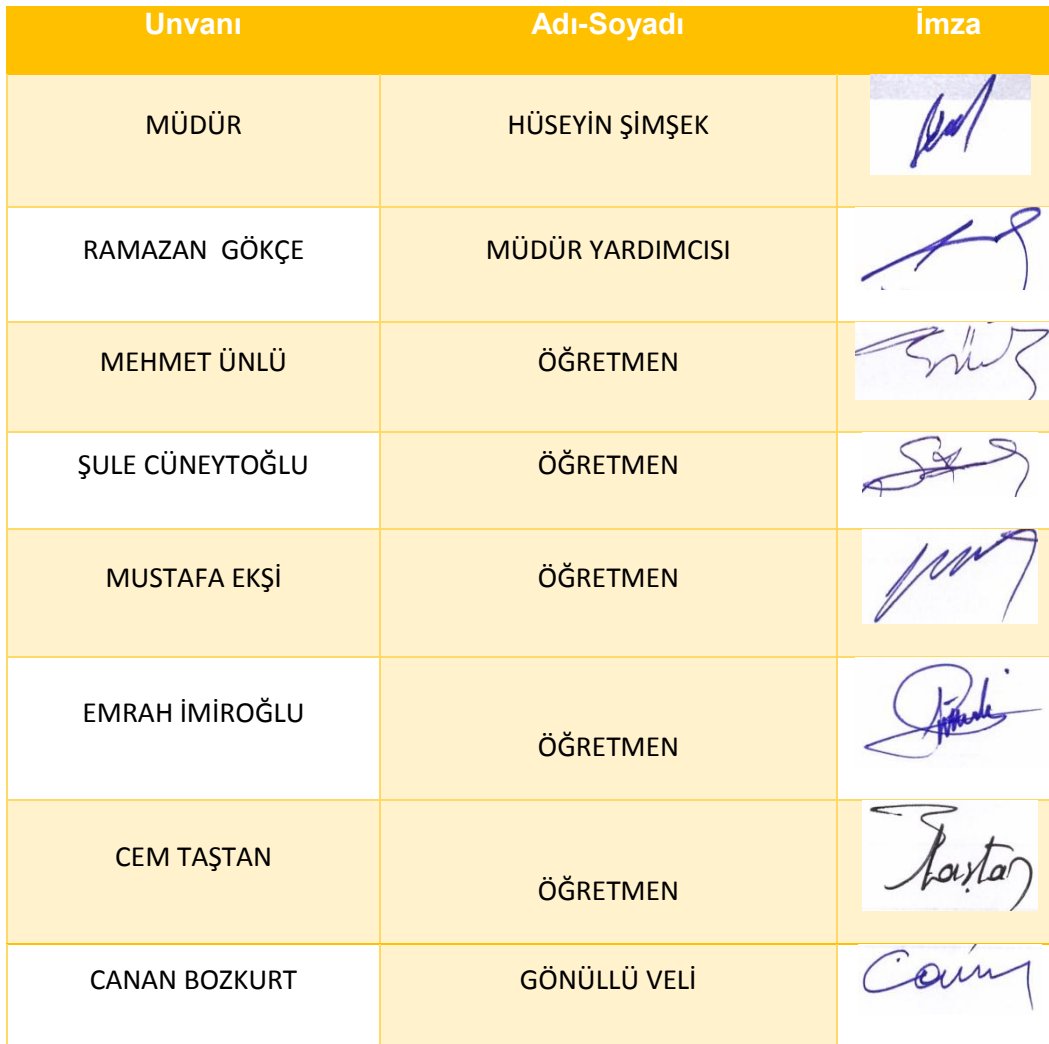 Unvanı Adı-Soyadı İmza
MÜDÜR HÜSEYİN ŞİMŞEK
RAMAZAN GÖKÇE MÜDÜR YARDIMCISI
MEHMET ÜNLÜ ÖĞRETMEN
ŞULE CÜNEYTOĞLU ÖĞRETMEN
MUSTAFA EKŞİ ÖĞRETMEN
EMRAH İMİROĞLU
ÖĞRETMEN
CEM TAŞTAN
ÖĞRETMEN
Taştan
CANAN BOZKURT GÖNÜLLÜ VELİ